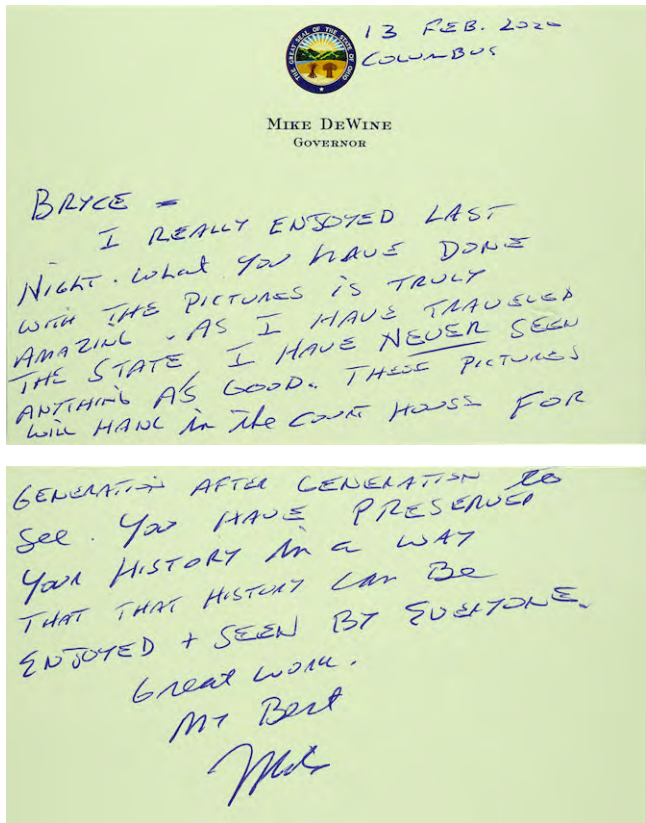 13 FEB. 2020
COLUMBUS
THE GREAT SEAL OF THE STATE OF OHIO
MIKE DEWINE
GOVERNOR
BRYCE =
I REALLY ENJOYED LAST
NIGHT. WHAT YOU HAVE DONE
WITH THE PICTURES IS TRULY
AMAZING. AS I HAVE TRAVELED
THE STATE, I HAVE NEVER SEEN
ANYTHING AS GOOD. THESE PICTURES
WILL HANG in the COURT HOUSE FOR
GENERATION AFTER GENERATION to
see. YOU HAVE PRESERVED
YOUR HISTORY in a WAY
THAT THAT HISTORY CAN BE
ENJOYED + SEEN BY EVERYONE.
Great WORK.
MY Best
Mike